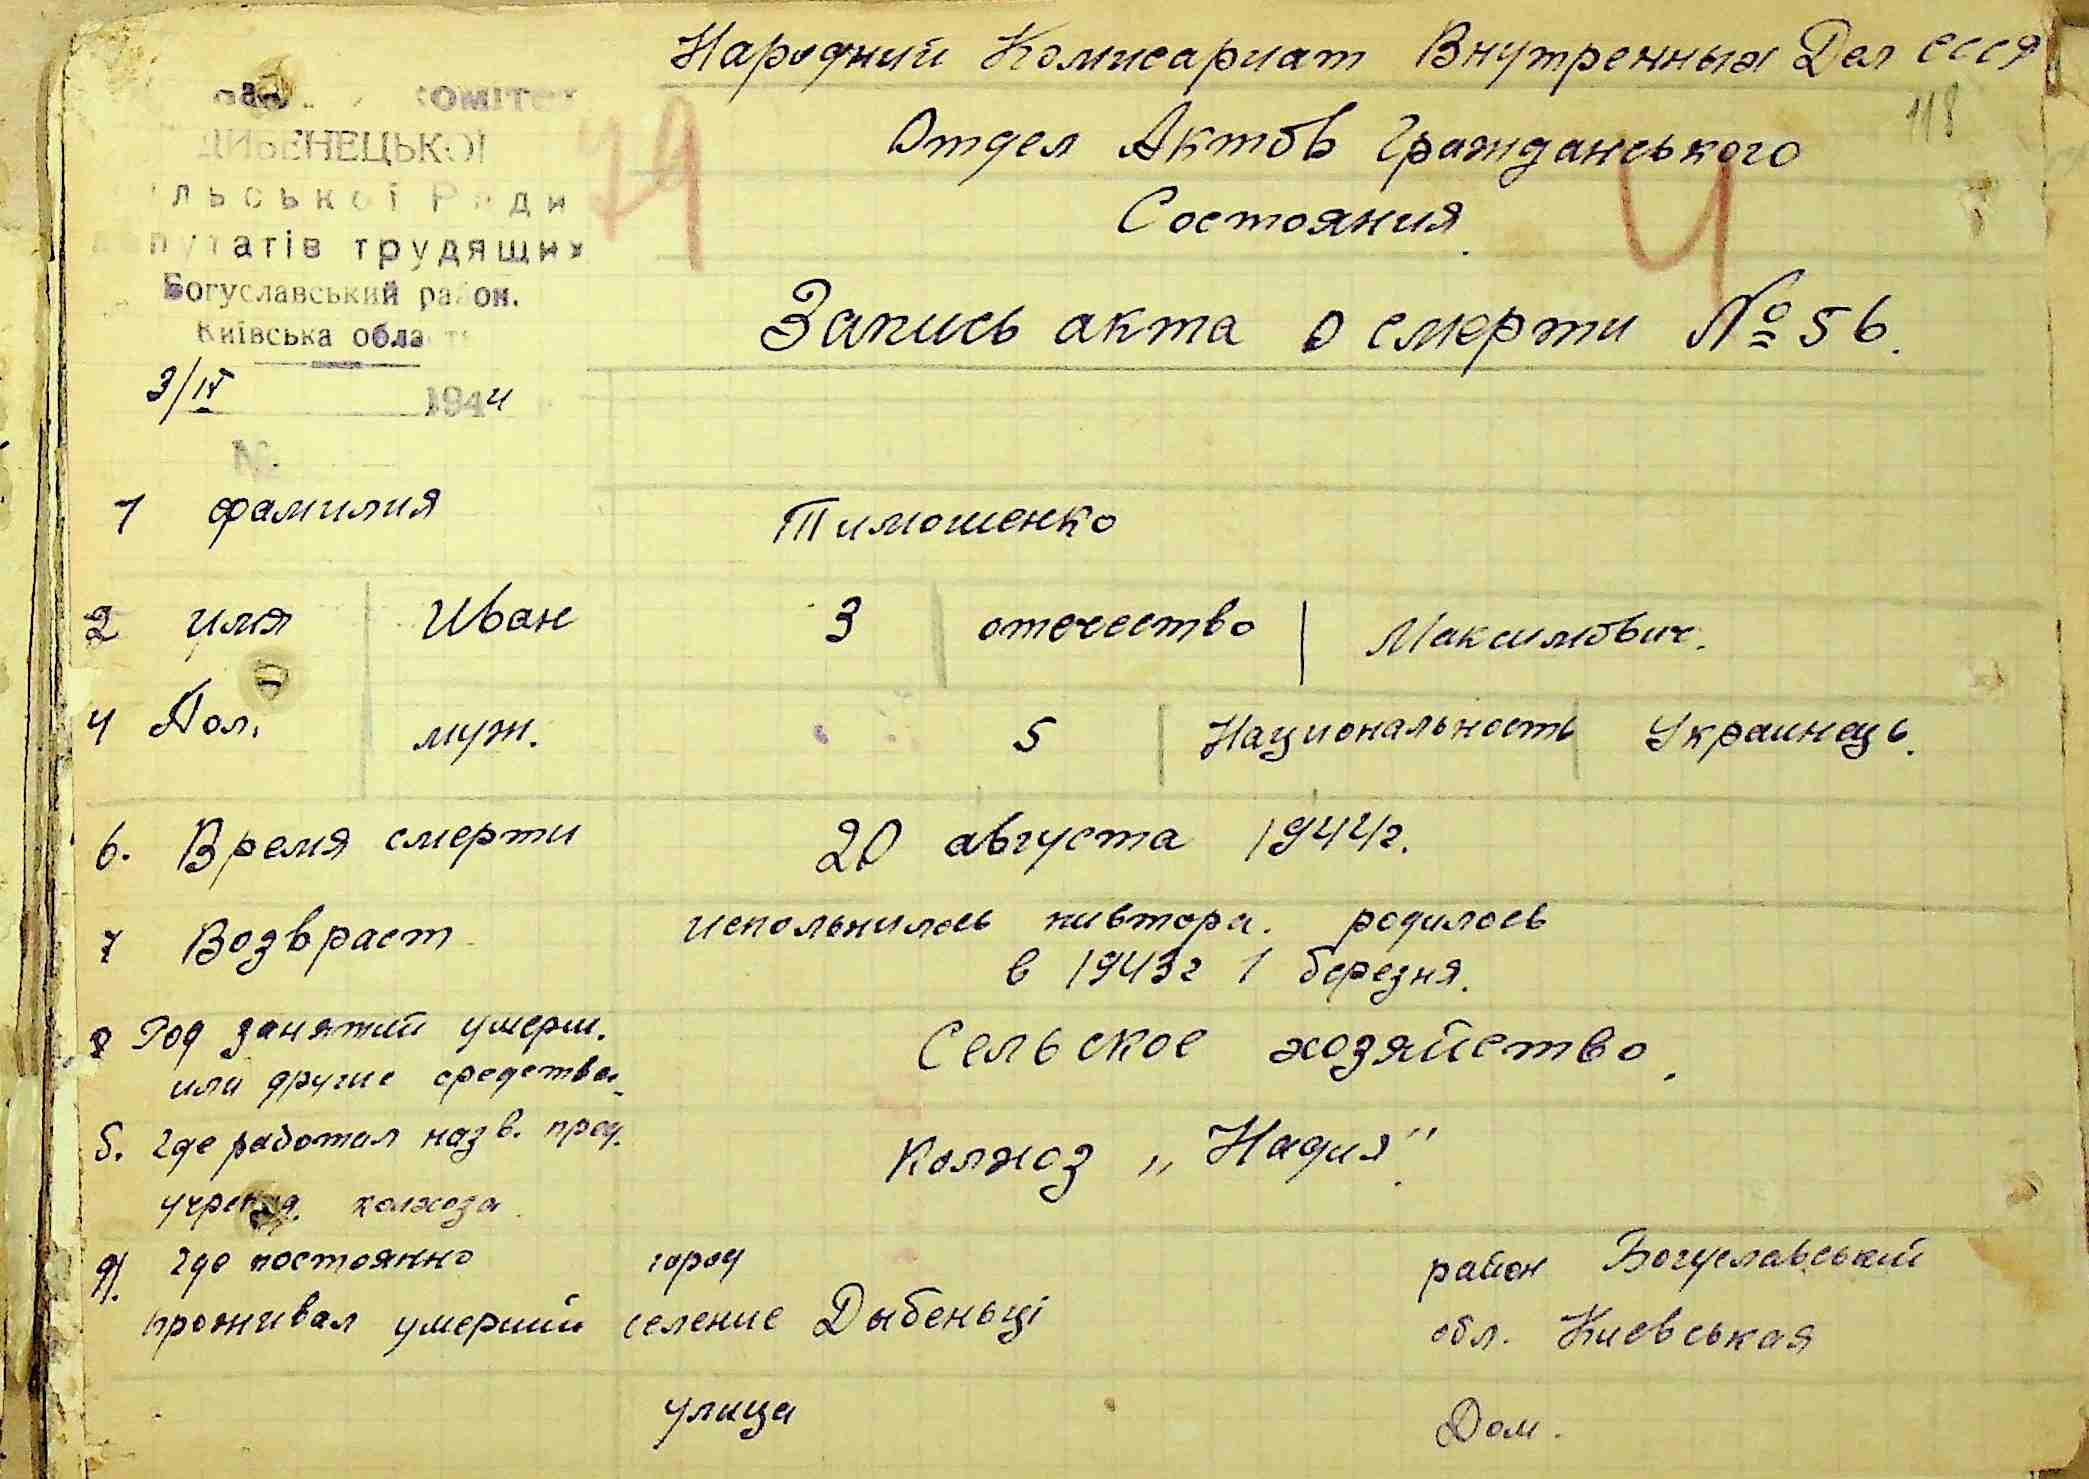 Народний Комисариат Внутренных Дел СССР
118
Отдел Актов Гражданського
Состояния
КОМІТЕТ
ДИБЕНЕЦЬКОЇ
ільської Ради
депутатів трудящих
Богуславський район.
Київська область
Запись акта о смерти № 56.
3/IV 1944
№
1 фамилия Тимошенко
2 имя Иван 3 отечество Максимович.
4 Пол. муж. 5 Национальность Украинець.
6. Время смерти 20 августа 1944г.
7 Возвраст испольнилось пивтора. родилось
в 1943г 1 березня.
8 Род занятий умерш. Сельское хозяйство.
или другие средства
б. Где работал назв. пред. Колхоз „Надия".
учрежд. колхоза
9. Где постоянно город район Богуславський
проживал умерший селение Дыбеньці обл. Киевськая
улица Дом.